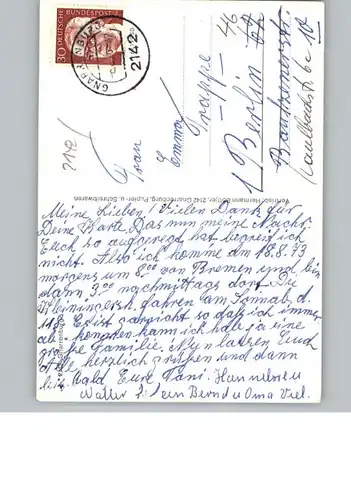 30 DEUTSCHE BUNDESPOST
GNARRENBURG
2142
2142
Frau
Emma
Trappe
1 Berlin 46
Vertrieb: Hermann 2142 Gnarrenburg, Papier- u. Schreibwaren
Meine Lieben! Vielen Dank für
Deine Karte. Das nun meine Nachr.
Euch so aufgeregt hat begreif ich
nicht. Also ich komme am 18.8.73
morgens um 8.00 von Bremen und bin
dann 3.00 nachmittags dort. Die
fahren am Sonnab. d.
11.8. Es ist garnicht so daß ich immer
kann ich habe ja eine
große Familie. Nun laßen Euch
Alle herzlich grüßen und dann
bis bald Eure Tani. Hannelore u
Walter Bernd u Oma Viel.